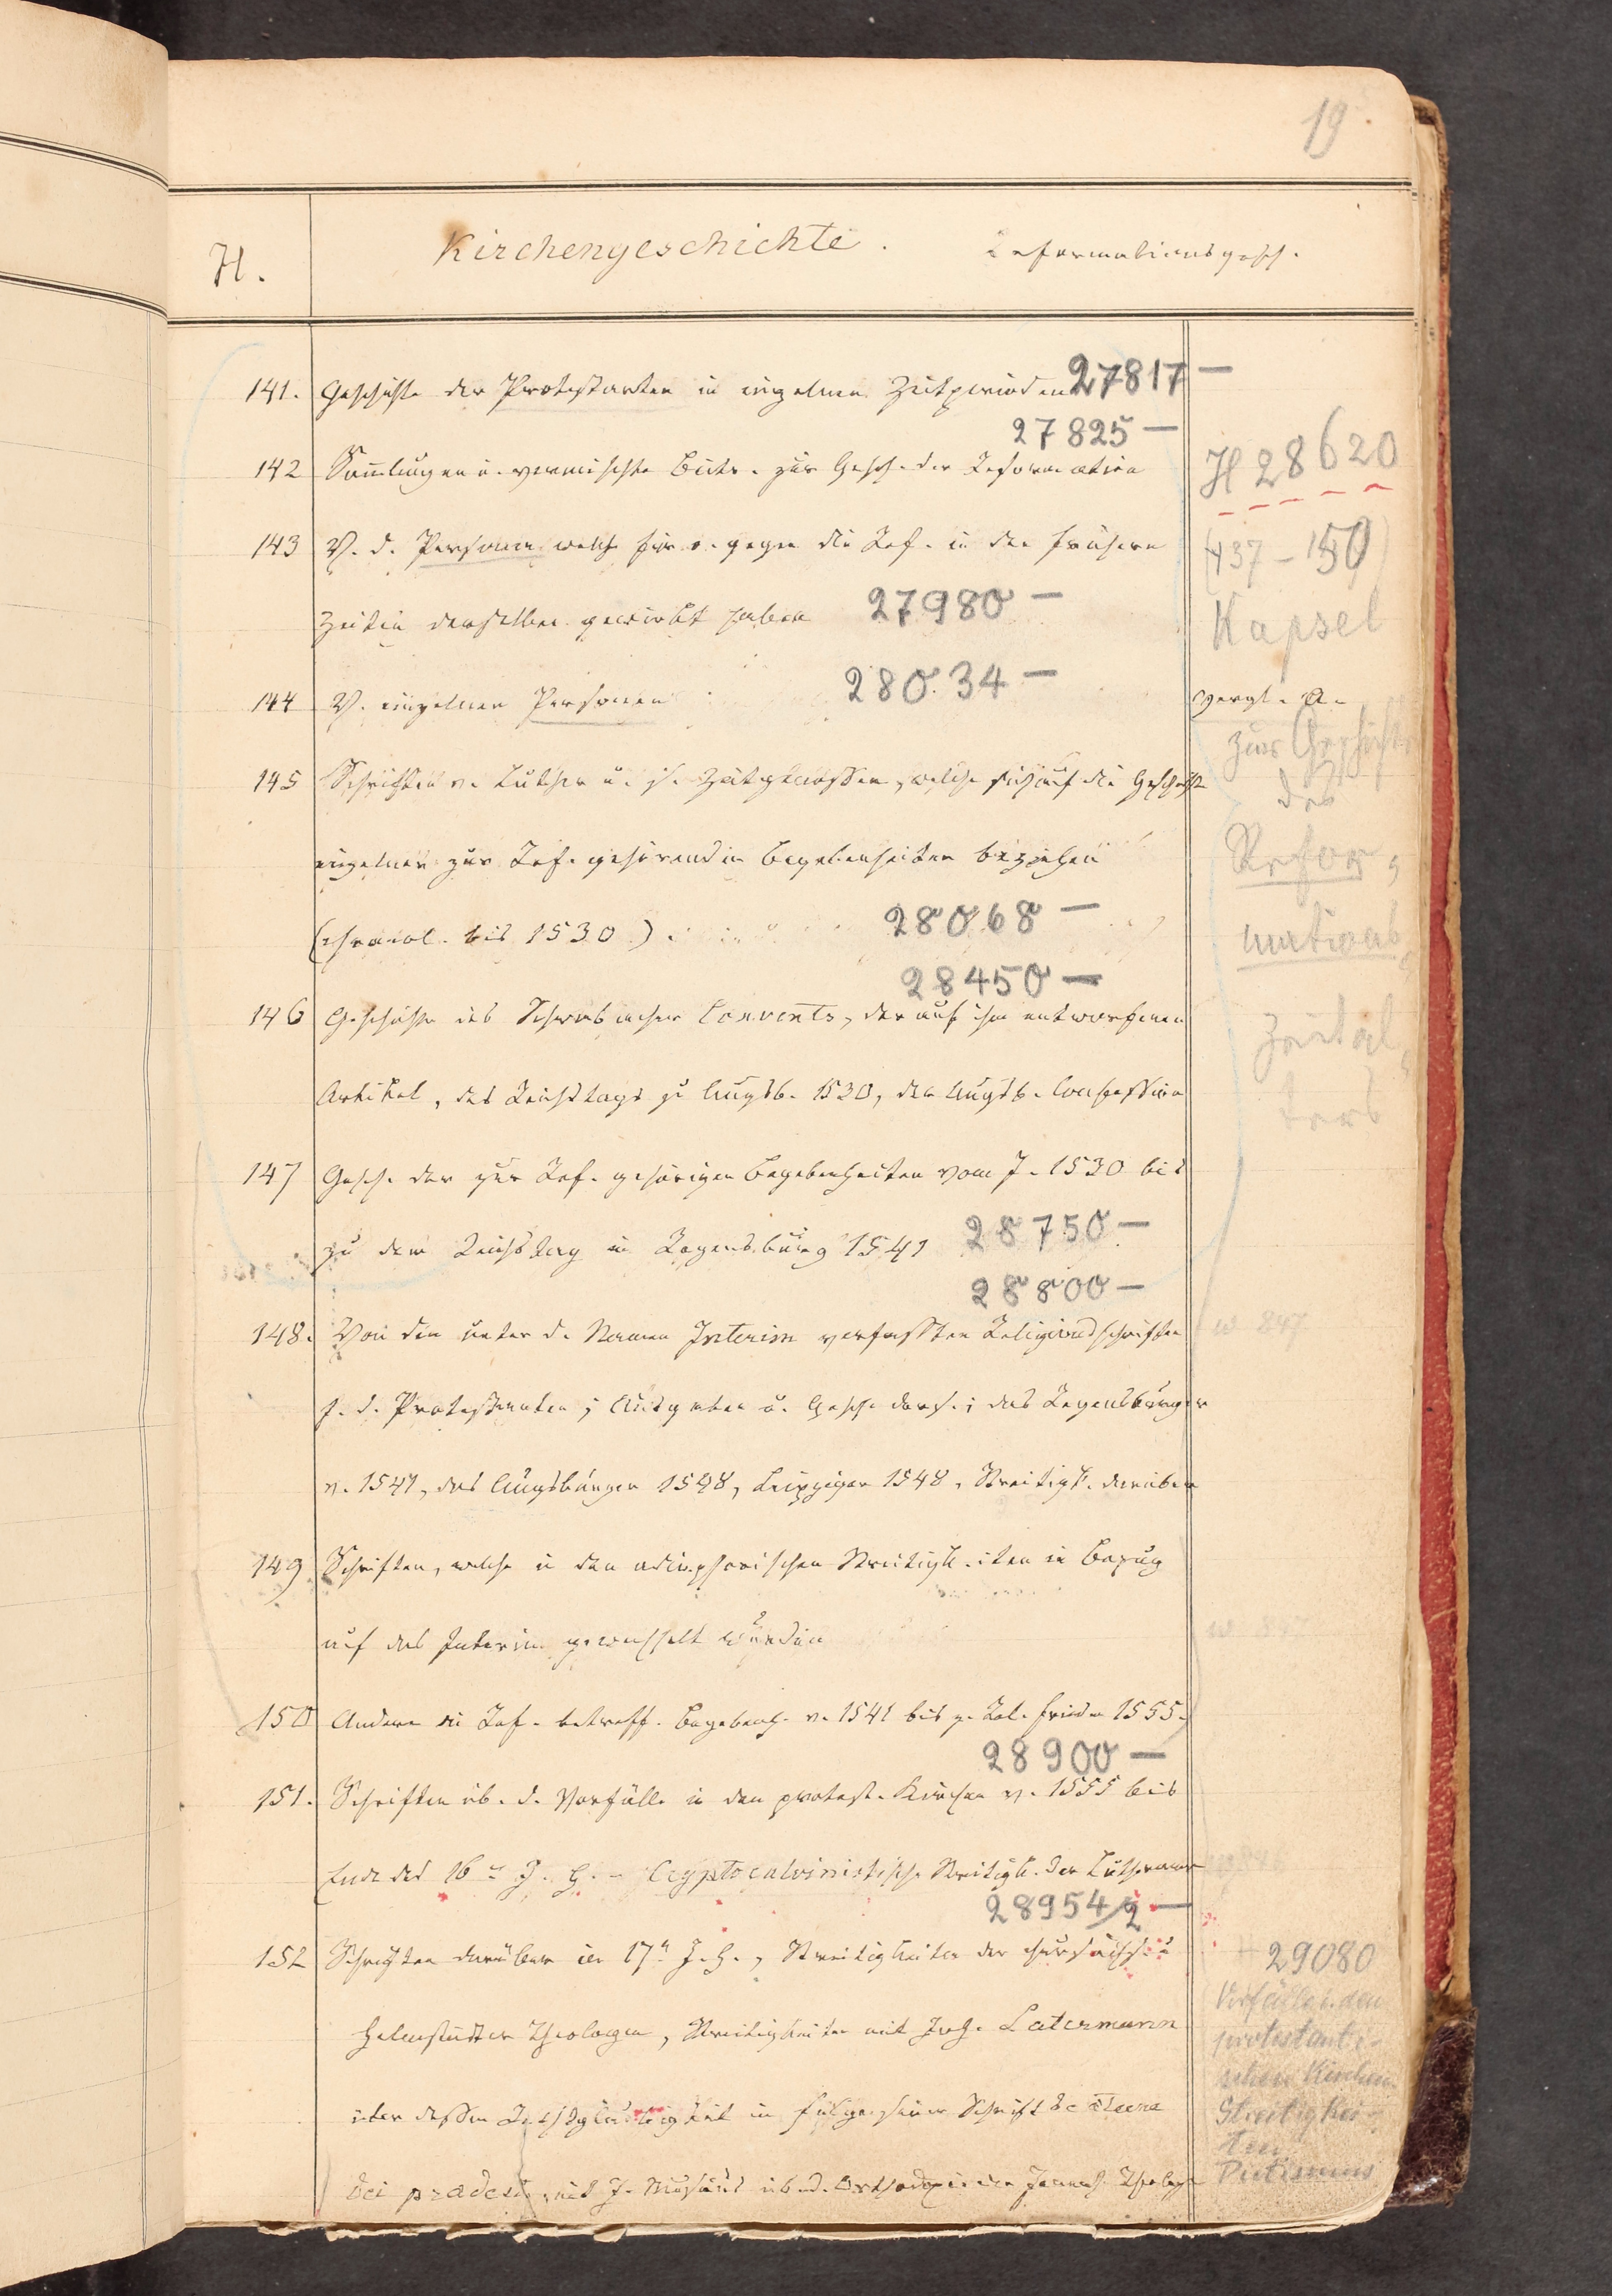 19
H.
Kirchengeschichte.
Reformationsgesch.
141. Geschichte der Protestanten in einzelnen Zeitperioden 27817 —
27825 —
142 Sammlungen u. vermischte Beitr. zur Gesch. der Reformation
H 28620
143 V. d. Personen welche für u. gegen die Ref. in den frühern
(437 – 150)
Zeiten derselben gewirkt haben 27980 —
Kapsel
144 V. einzelnen Personen 28034 —
vergl. a.
zur Geschichte
145 Schriften v. Luther u. s. Zeitgenossen, welche sich auf die Geschichte
des
einzelner zur Ref. gehörenden Begebenheiten beziehen
Refor,
(chronol. bis 1530) 28068 —
mations
28450 —
146 Geschichte des Schwabacher Convents, der auf ihm entworfenen
Zeital,
Artikel, des Reichstags zu Augsb. 1530, der Augsb. Confession
ters
147 Gesch. der zur Ref. gehörigen Begebenheiten vom J. 1530 bis
zu dem Reichstag in Regensburg 1541 28750 —
28800 —
148. Von den unter d. Namen Interim verfassten Religionsschriften
w 847
f. d. Protestanten; Ausgaben u. Gesch. ders.; das Regensburger
v. 1541, das Augsburger 1548, Leipziger 1548, Streitigk. darüber
149 Schriften, welche in den adiaphorischen Streitigkeiten in Bezug
auf das Interim gewechselt wurden
w 847
150 Andere die Ref. betreff. Begebenh. v. 1541 bis z. Rel. Frieden 1555.
28900 —
151. Schriften üb. d. Vorfälle in den protest. Kirchen v. 1555 bis
Ende des 16n J. H. – Cryptocalvinistische Streitigk. der Lutheraner
28954/2 —
152 Schriften darüber im 17n J. H., Streitigkeiten der chursächs. u
29080
Helmstädter Theologen, Streitigkeiten mit Joh. Latermann
Vorfälle i. den
protestanti-
schen Kirchen
über dessen Rechtgläubigkeit in Folge seiner Schrift de aeterna
Streitigkei-
ten
Dei praedest. mit J. Musäus üb. d. Orthodoxie der Jenaisch. Theologen
Pietismus